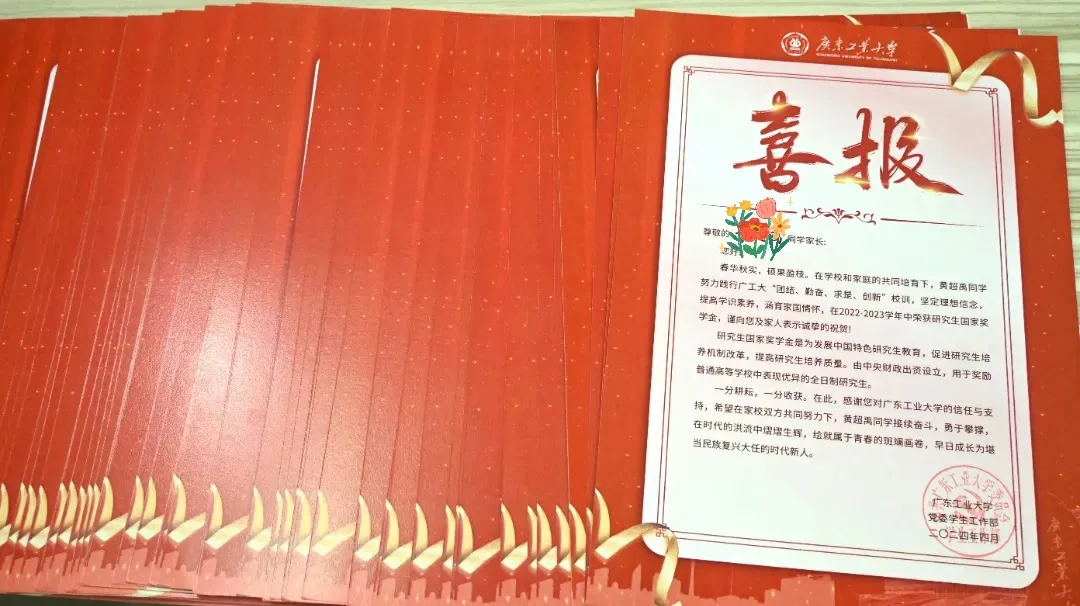 广东工业大学
GUANGDONG UNIVERSITY OF TECHNOLOGY
喜报
尊敬的 同学家长:
您好
春华秋实，硕果盈枝。在学校和家庭的共同培育下，黄超禹同学
努力践行广工大“团结、勤奋、求是、创新”校训，坚定理想信念，
提高学识素养，涵育家国情怀，在2022-2023学年中荣获研究生国家奖
学金，谨向您及家人表示诚挚的祝贺!
研究生国家奖学金是为发展中国特色研究生教育，促进研究生培
养机制改革，提高研究生培养质量。由中央财政出资设立，用于奖励
普通高等学校中表现优异的全日制研究生。
一分耕耘，一分收获。在此，感谢您对广东工业大学的信任与支
持，希望在家校双方共同努力下，黄超禹同学接续奋斗，勇于攀撑，
在时代的洪流中熠熠生辉，绘就属于青春的斑斓画卷，早日成长为堪
当民族复兴大任的时代新人。
广东工业大学
党委学生工作部
二〇二四年四月